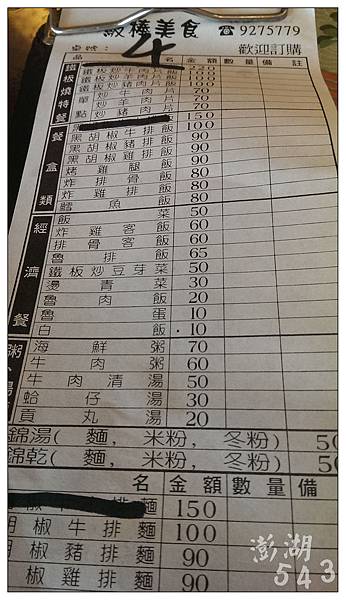 級棒美食 ☎9275779
桌號: 4 歡迎訂購
品 名 金額 數量 備註
鐵板燒特餐
鐵板炒牛肉飯
鐵板炒羊肉飯 100
鐵板炒豬肉飯 100
單點
炒牛肉片 70
炒羊肉片 70
炒豬肉片 70
150
餐盒類
黑胡椒牛排飯 100
黑胡椒豬排飯 90
黑胡椒雞排飯 90
烤雞腿飯 90
炸排骨飯 80
炸雞排飯 80
鱈魚飯 80
經濟餐
飯菜 50
炸雞客飯 60
排骨客飯 60
魯排飯 65
鐵板炒豆芽菜 50
燙青菜 30
魯肉飯 20
魯蛋 10
白飯 10
粥、湯
海鮮粥 70
牛肉粥 60
牛肉清湯 50
蛤仔湯 30
貢丸湯 20
錦湯(麵, 米粉, 冬粉) 50
錦乾(麵, 米粉, 冬粉) 50
名 金額 數量 備
椒牛肉排麵 150
胡椒牛排麵 100
椒豬排麵 90
椒雞排麵 90
澎湖543